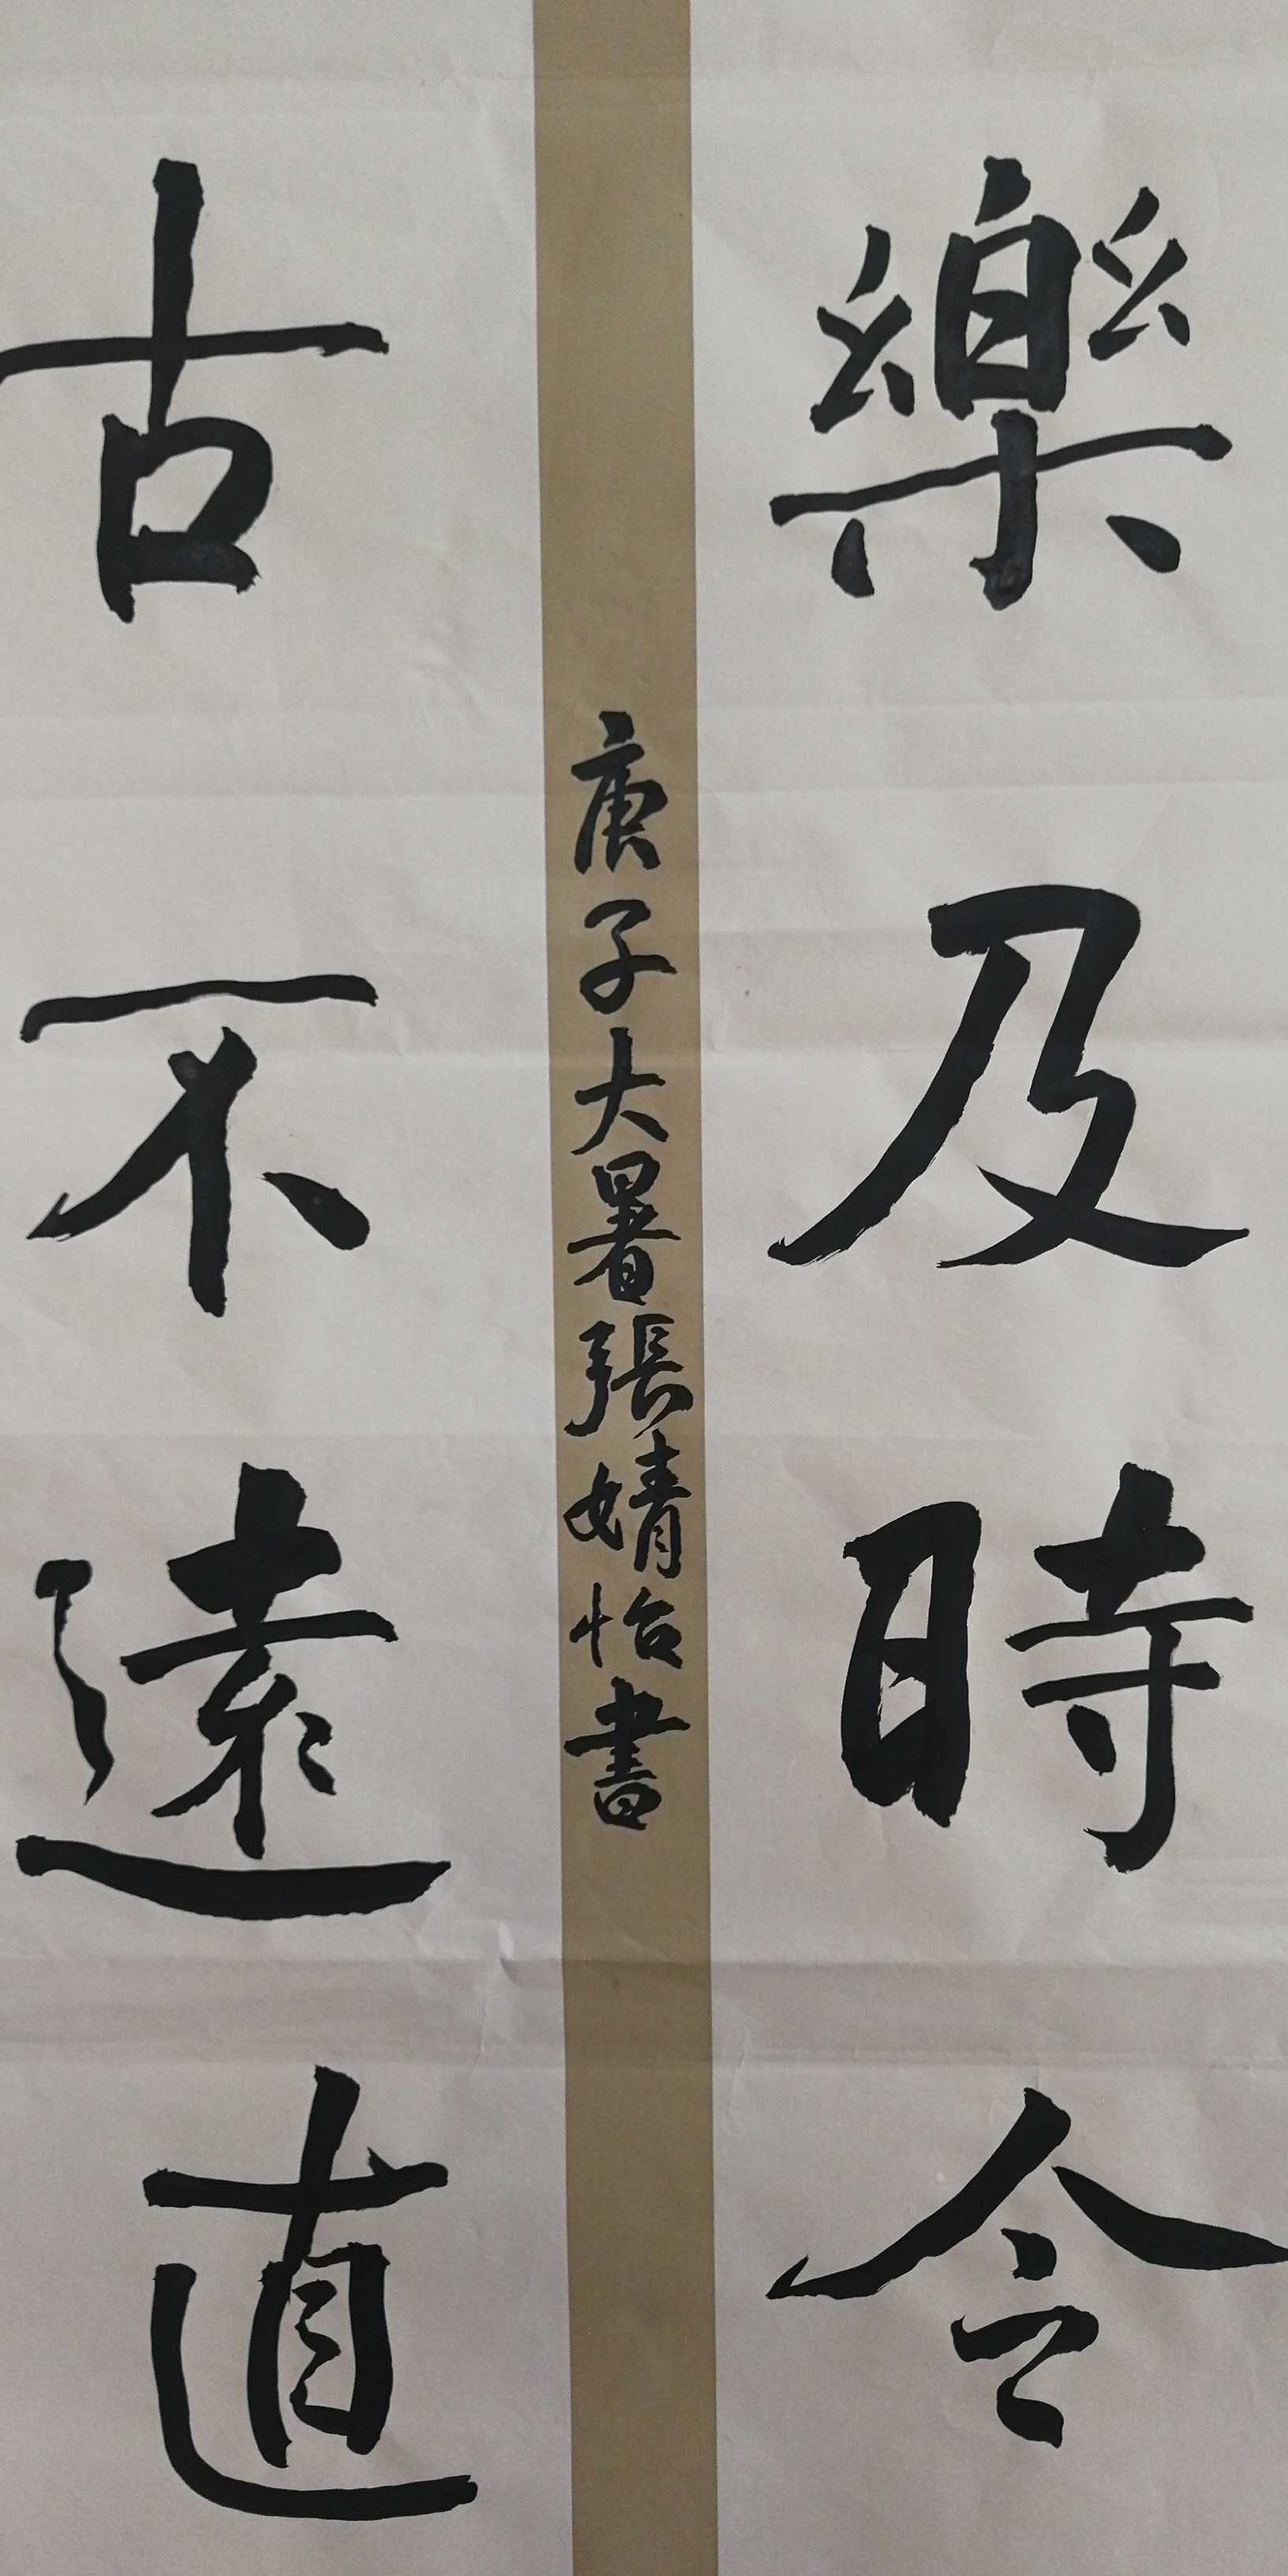 樂及時令
古不遠直
庚子大暑張婧怡書